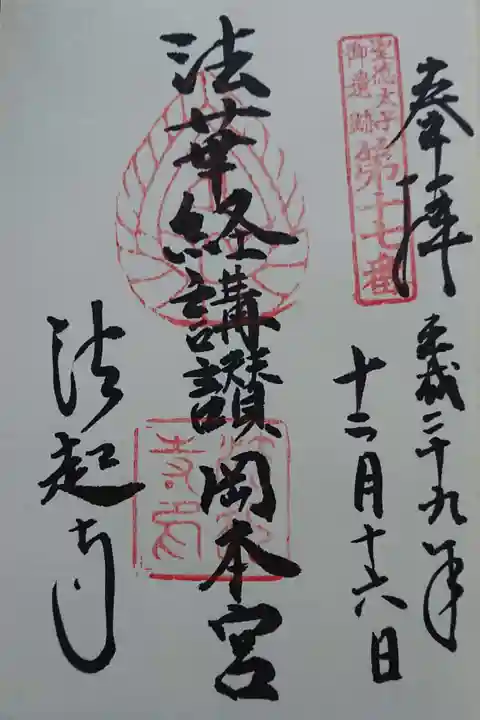 奉拝
聖徳太子
御遺跡
第十七番
平成二十九年
十二月十六日
法華経講讃岡本宮
法起寺